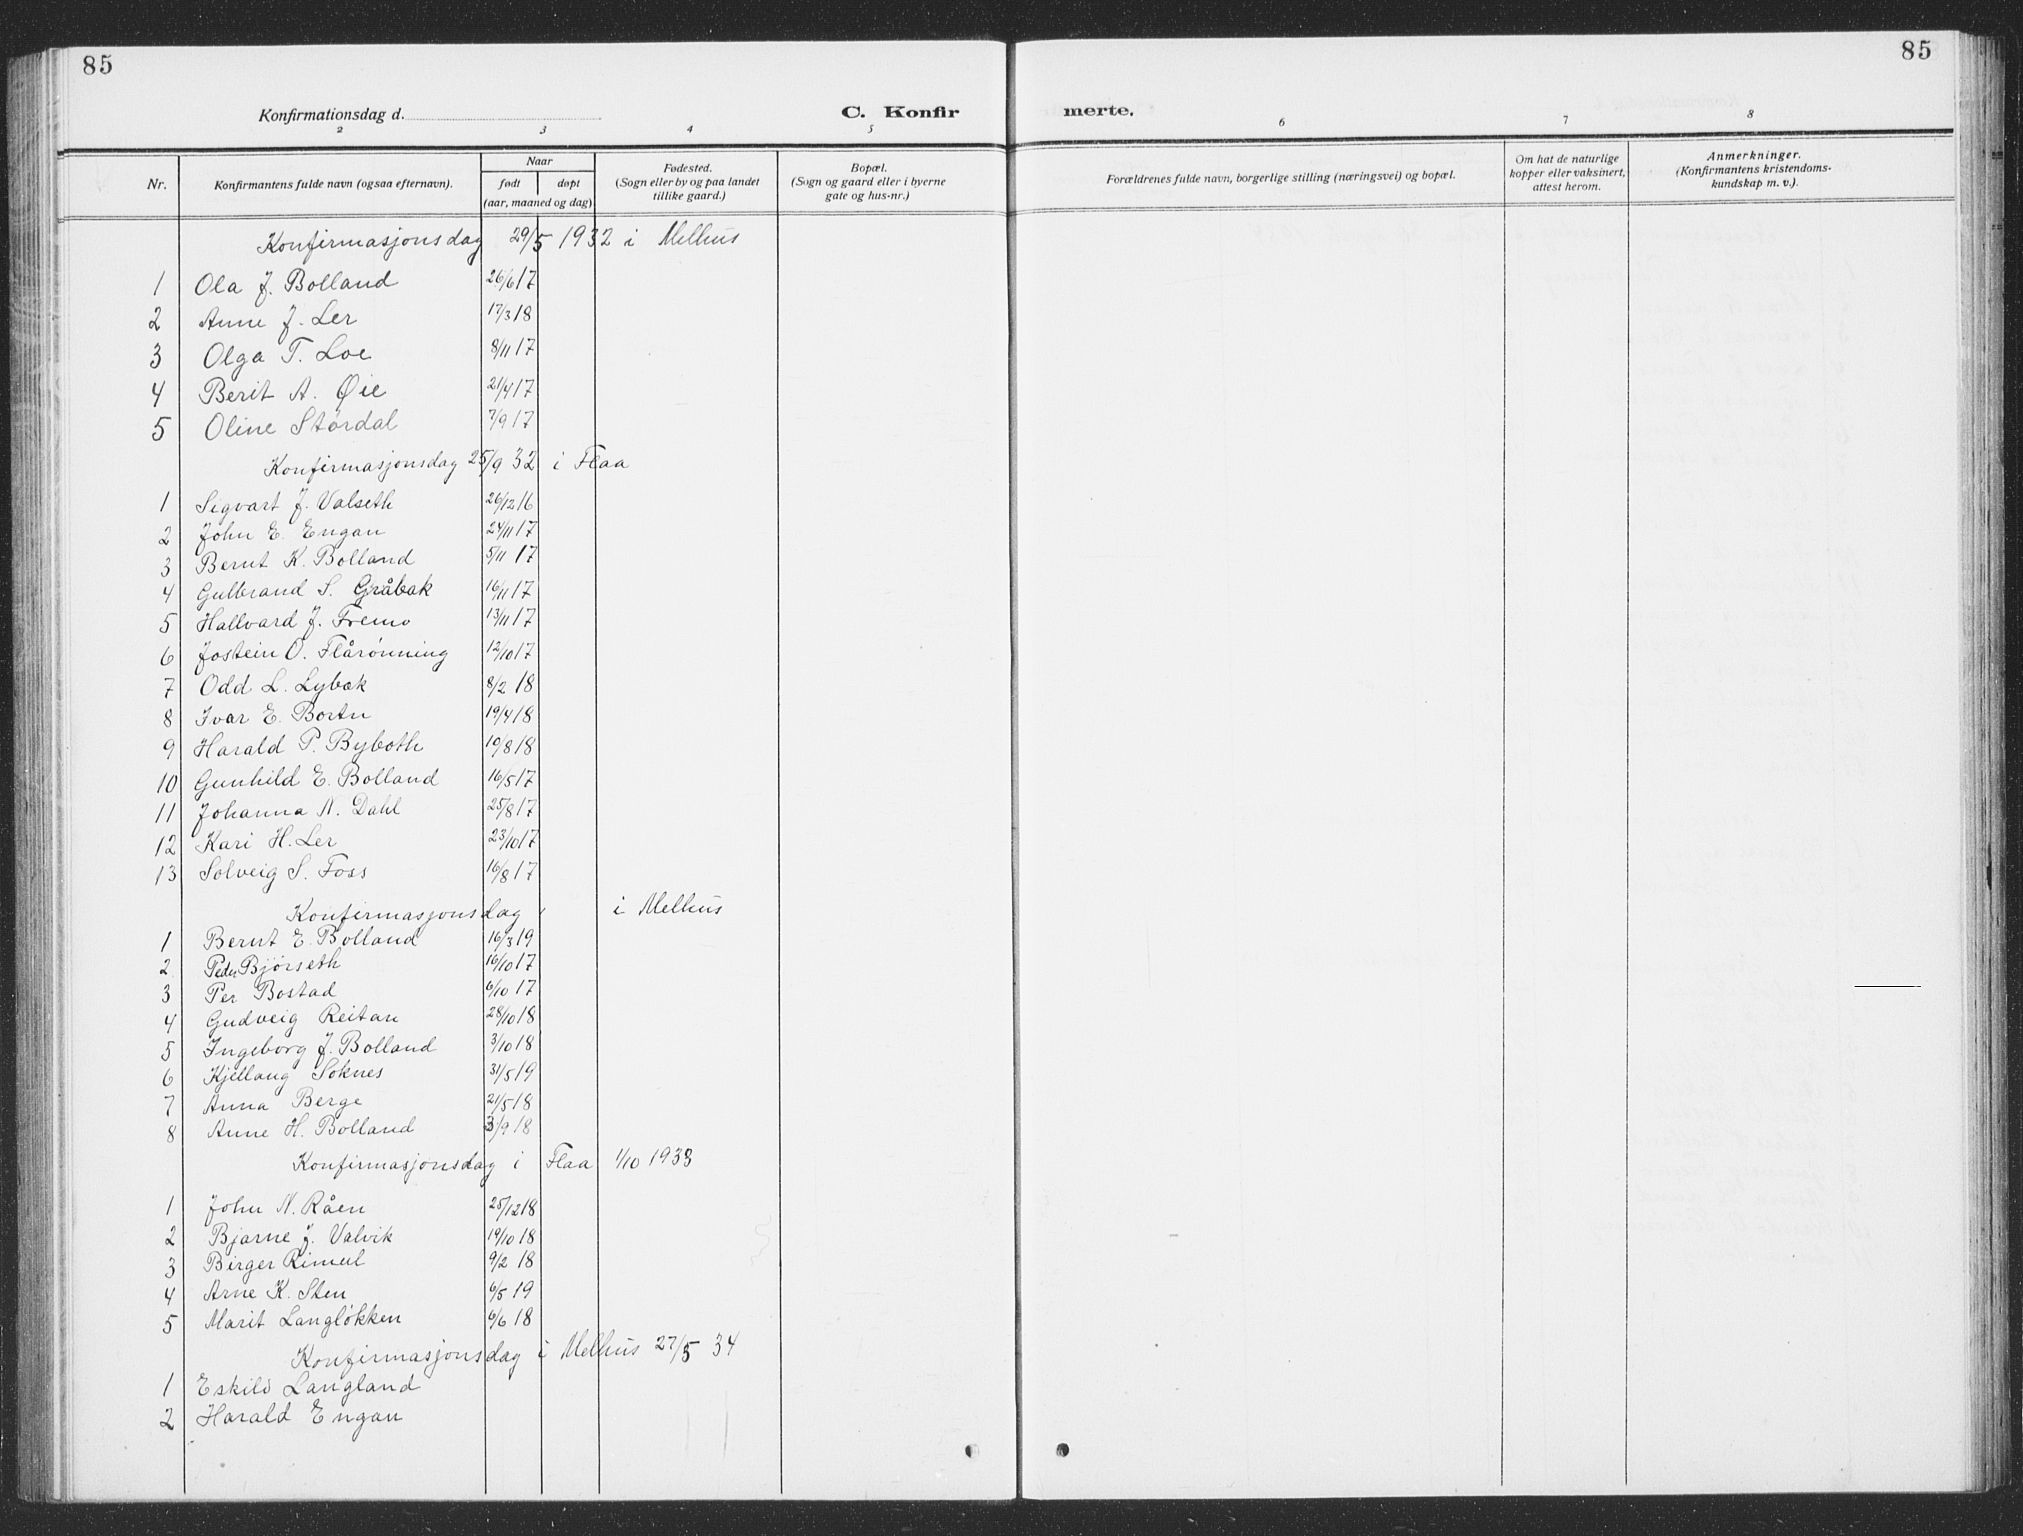 85
85
Konfirmationsdag d.
C. Konfir
merte.
2 3 4 5 6 7 8
Nr.
Konfirmantens fulde navn (ogsaa efternavn).
Naar
født døpt
(aar, maaned og dag)
Fødested.
(Sogn eller by og paa landet
tillike gaard.)
Bopæl.
(Sogn og gaard eller i byerne
gate og hus-nr.)
Forældrenes fulde navn, borgerlige stilling (næringsvei) og bopæl.
Om hat de naturlige
kopper eller vaksinert,
attest herom.
Anmerkninger.
(Konfirmantens kristendoms-
kundskap m. v.).
Konfirmasjonsdag 29/5 1932 i Melhus
1 Ola J. Bolland 26/6 17
2 Anne J. Ler 17/3 18
3 Olga T. Loe 8/11 17
4 Berit A. Øie 21/4 17
5 Oline Størdal 7/9 17
Konfirmasjonsdag 25/9 32 i Flaa
1 Sigvart J. Valseth 26/12 16
2 John E. Engan 24/11 17
3 Bernt K. Bolland 5/11 17
4 Gulbrand S. Gråbak 16/11 17
5 Hallvard J. Fremo 13/11 17
6 Jostein O. Flårønning 12/10 17
7 Odd L. Lybæk 8/2 18
8 Ivar E. Bortn 19/4 18
9 Harald P. Byboth 10/8 18
10 Gunhild E. Bolland 16/5 17
11 Johanna N. Dahl 25/8 17
12 Kari H. Ler 23/10 17
13 Solveig S. Foss 16/8 17
Konfirmasjonsdag i Melhus
1 Bernt E. Bolland 16/3 19
2 Peder Bjørseth 16/10 17
3 Per Bostad 6/10 17
4 Gudveig Reitan 28/10 18
5 Ingeborg J. Bolland 3/10 18
6 Kjellaug Soknes 31/5 19
7 Anna Berge 21/5 18
8 Anne H. Bolland 3/9 18
Konfirmasjonsdag i Flaa 1/10 1933
1 John N. Råen 25/12 18
2 Bjarne J. Valvik 19/10 18
3 Birger Rimul 9/2 18
4 Arne K. Sten 6/5 19
5 Marit Langløkken 6/6 18
Konfirmasjonsdag i Melhus 27/5 34
1 Eskild Langland
2 Harald Engan